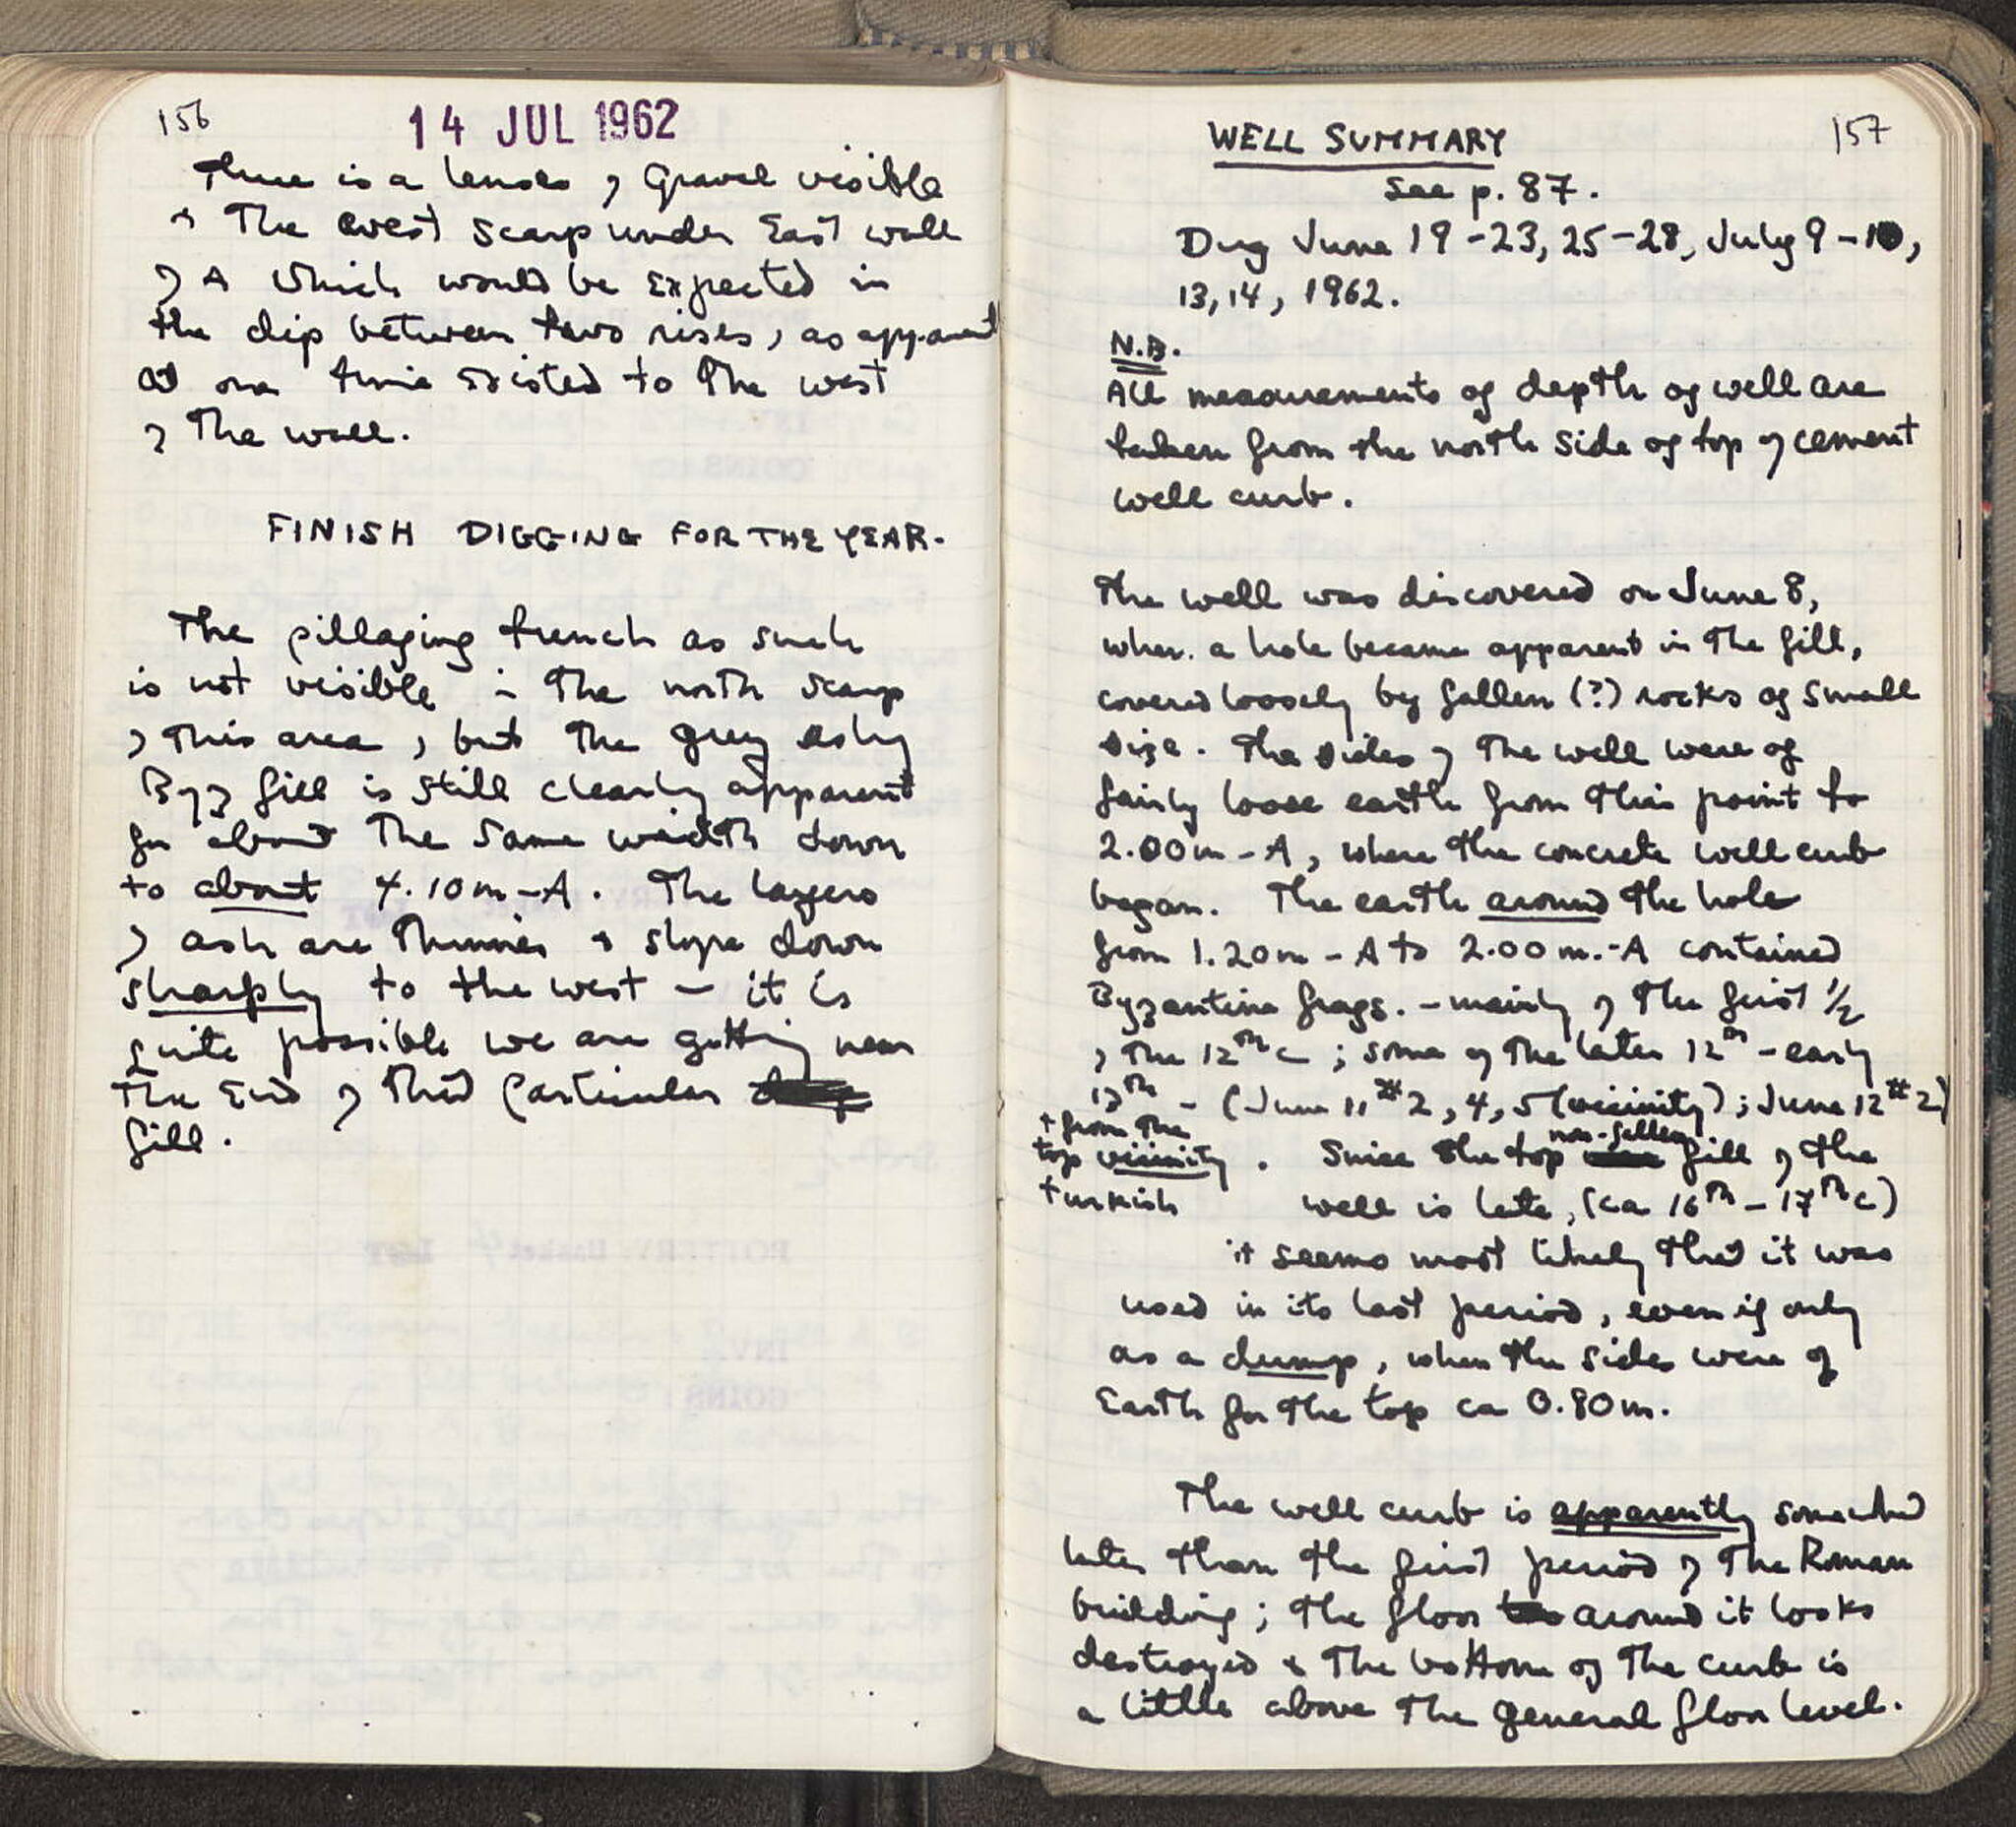 156
14 JUL 1962
There is a lenses of gravel visible
in the west scarp under East wall
of A which would be expected in
the dip between two rises, as apparent
at one time existed to the west
of the wall.
FINISH DIGGING FOR THE YEAR.
The pillaging trench as such
is not visible in the north scarp
of this area, but the grey ashy
Byz fill is still clearly apparent
for about the same width down
to about 4.10m-A. The layers
of ash are thinner & slope down
sharply to the west - it is
quite possible we are getting near
the End of this particular
fill.
157
WELL SUMMARY
See p. 87.
Dug June 19-23, 25-28, July 9-10,
13, 14, 1962.
N.B.
All measurements of depth of well are
taken from the north side of top of cement
well curb.
The well was discovered on June 8,
when a hole became apparent in the fill,
covered loosely by fallen (?) rocks of small
size. The sides of the well were of
fairly loose earth from this point to
2.00m-A, where the concrete well curb
began. The earth around the hole
from 1.20m-A to 2.00m.-A contained
Byzantine frags. - mainly of the first 1/2
of the 12th c; some of the later 12th - early
13th - (June 11 #2, 4, 5 (vicinity); June 12 #2)
+ from the
top vicinity
turkish
. Since the top non-fallen fill of the
well is late, (ca 16th - 17th c)
it seems most likely that it was
used in its last period, even if only
as a dump, when the sides were of
Earth for the top ca 0.80m.
The well curb is apparently somewhat
later than the first period of the Roman
building; the floor around it looks
destroyed & the bottom of the curb is
a little above the general floor level.